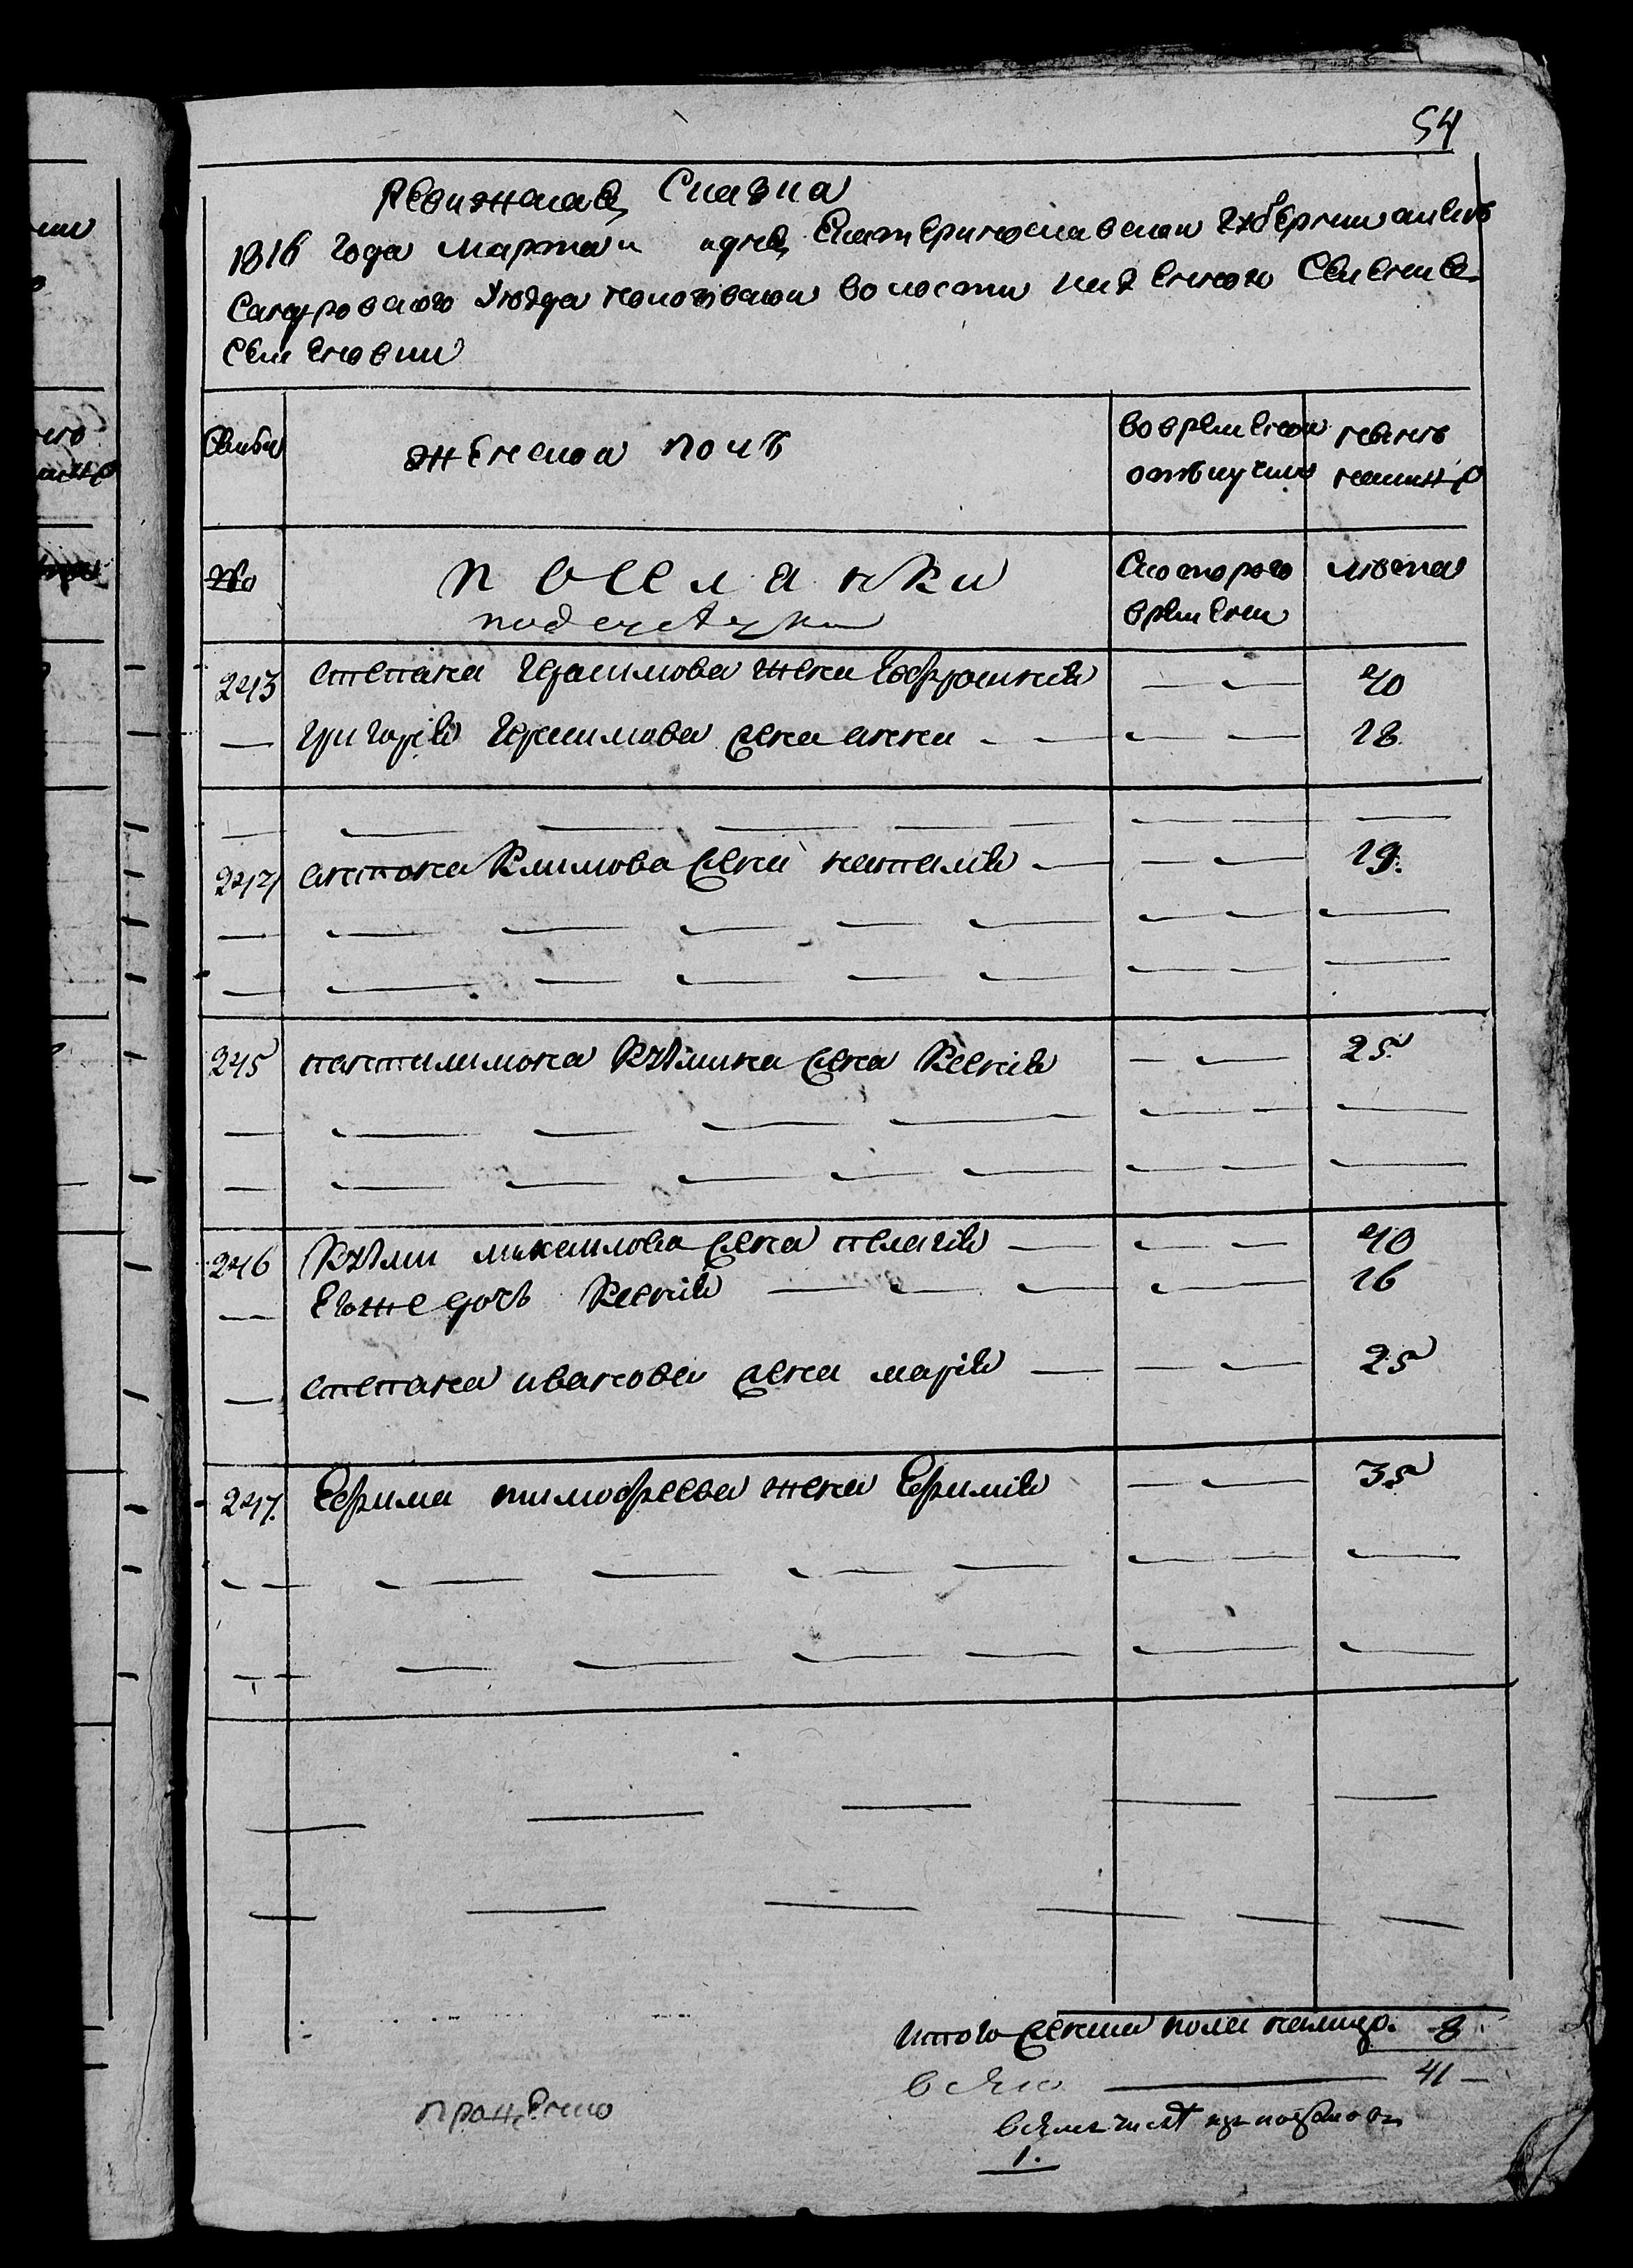 54
Ревижская Сказка
1816 года марта дня Екатеринославской Губернии Алек
сандровского Уезда волости казенного Селения
Семеновки
Семьи
женской полъ
во временной
отълучки
ныне
налицо
№
поселянки
Скоторого
времени
лета
243 степана Герасимова жена Ефросиния — 40
— григория Герасимова жена анна — 18.
244 антона Климова жена наталия — 19.
245 пантилимона Кузмина жена Ксения — 25
246 Кузми михаилова жена пелагия — 40
— Егоже дочь Ксения — 16
— степана иванова жена мария — 25
247. Ефима тимофеева жена Ефимия — 35
Итого женска пола налицо. 8
всего — 41 —
1.